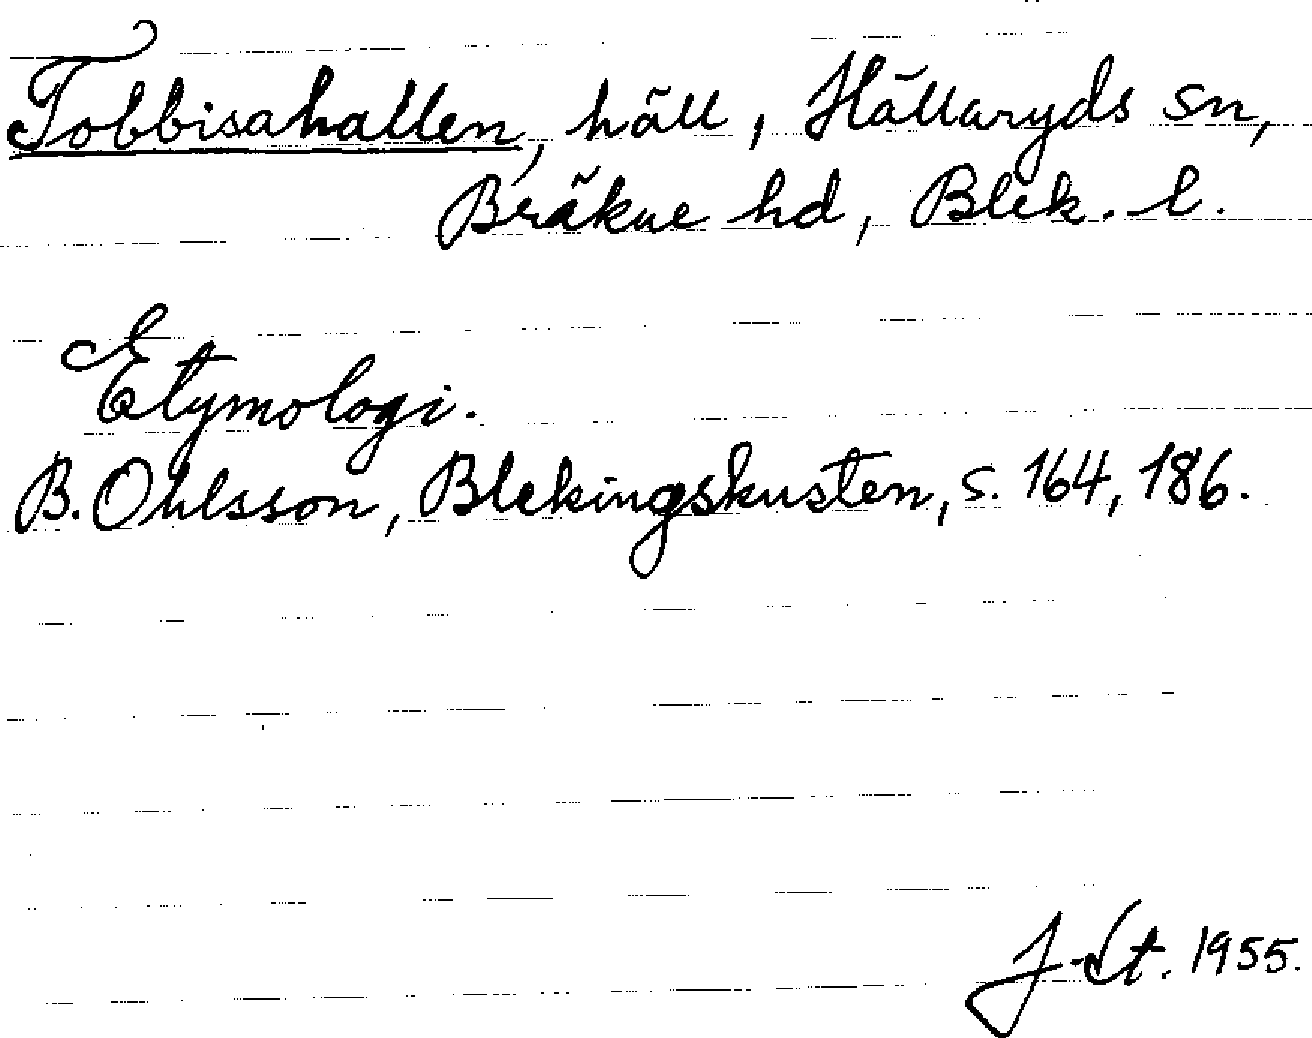 Tobbisahallen, häll, Hällaryds sn,
Bräkne hd, Blek. l.
Etymologi.
B. Ohlsson, Blekingskusten, s. 164, 186.
J-dt. 1955.